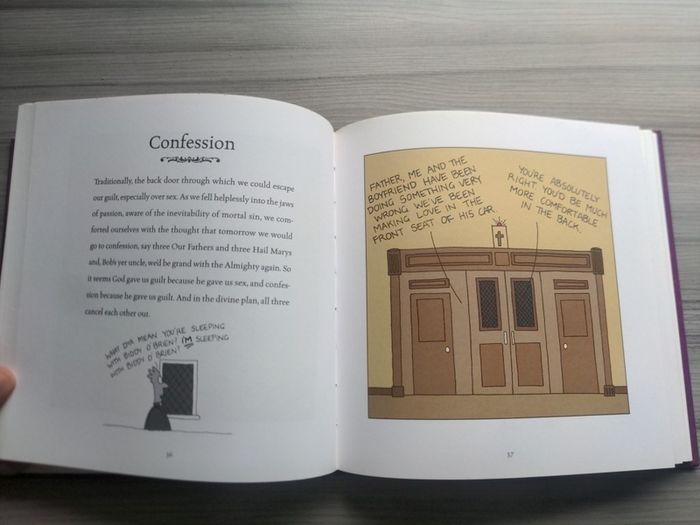 Confession
Traditionally, the back door through which we could escape
our guilt, especially over sex. As we fell helplessly into the jaws
of passion, aware of the inevitability of mortal sin, we com-
forted ourselves with the thought that tomorrow we would
go to confession, say three Our Fathers and three Hail Marys
and, Bob's yer uncle, we'd be grand with the Almighty again. So
it seems God gave us guilt because he gave us sex, and confes-
sion because he gave us guilt. And in the divine plan, all three
cancel each other out.
WHAT D'YA MEAN YOU'RE SLEEPING
WITH BIDDY O'BRIEN? I'M SLEEPING
WITH BIDDY O'BRIEN!
36
FATHER, ME AND THE
BOYFRIEND HAVE BEEN
DOING SOMETHING VERY
WRONG. WE'VE BEEN
MAKING LOVE IN THE
FRONT SEAT OF HIS CAR.
YOU'RE ABSOLUTELY
RIGHT. YOU'D BE MUCH
MORE COMFORTABLE
IN THE BACK.
37